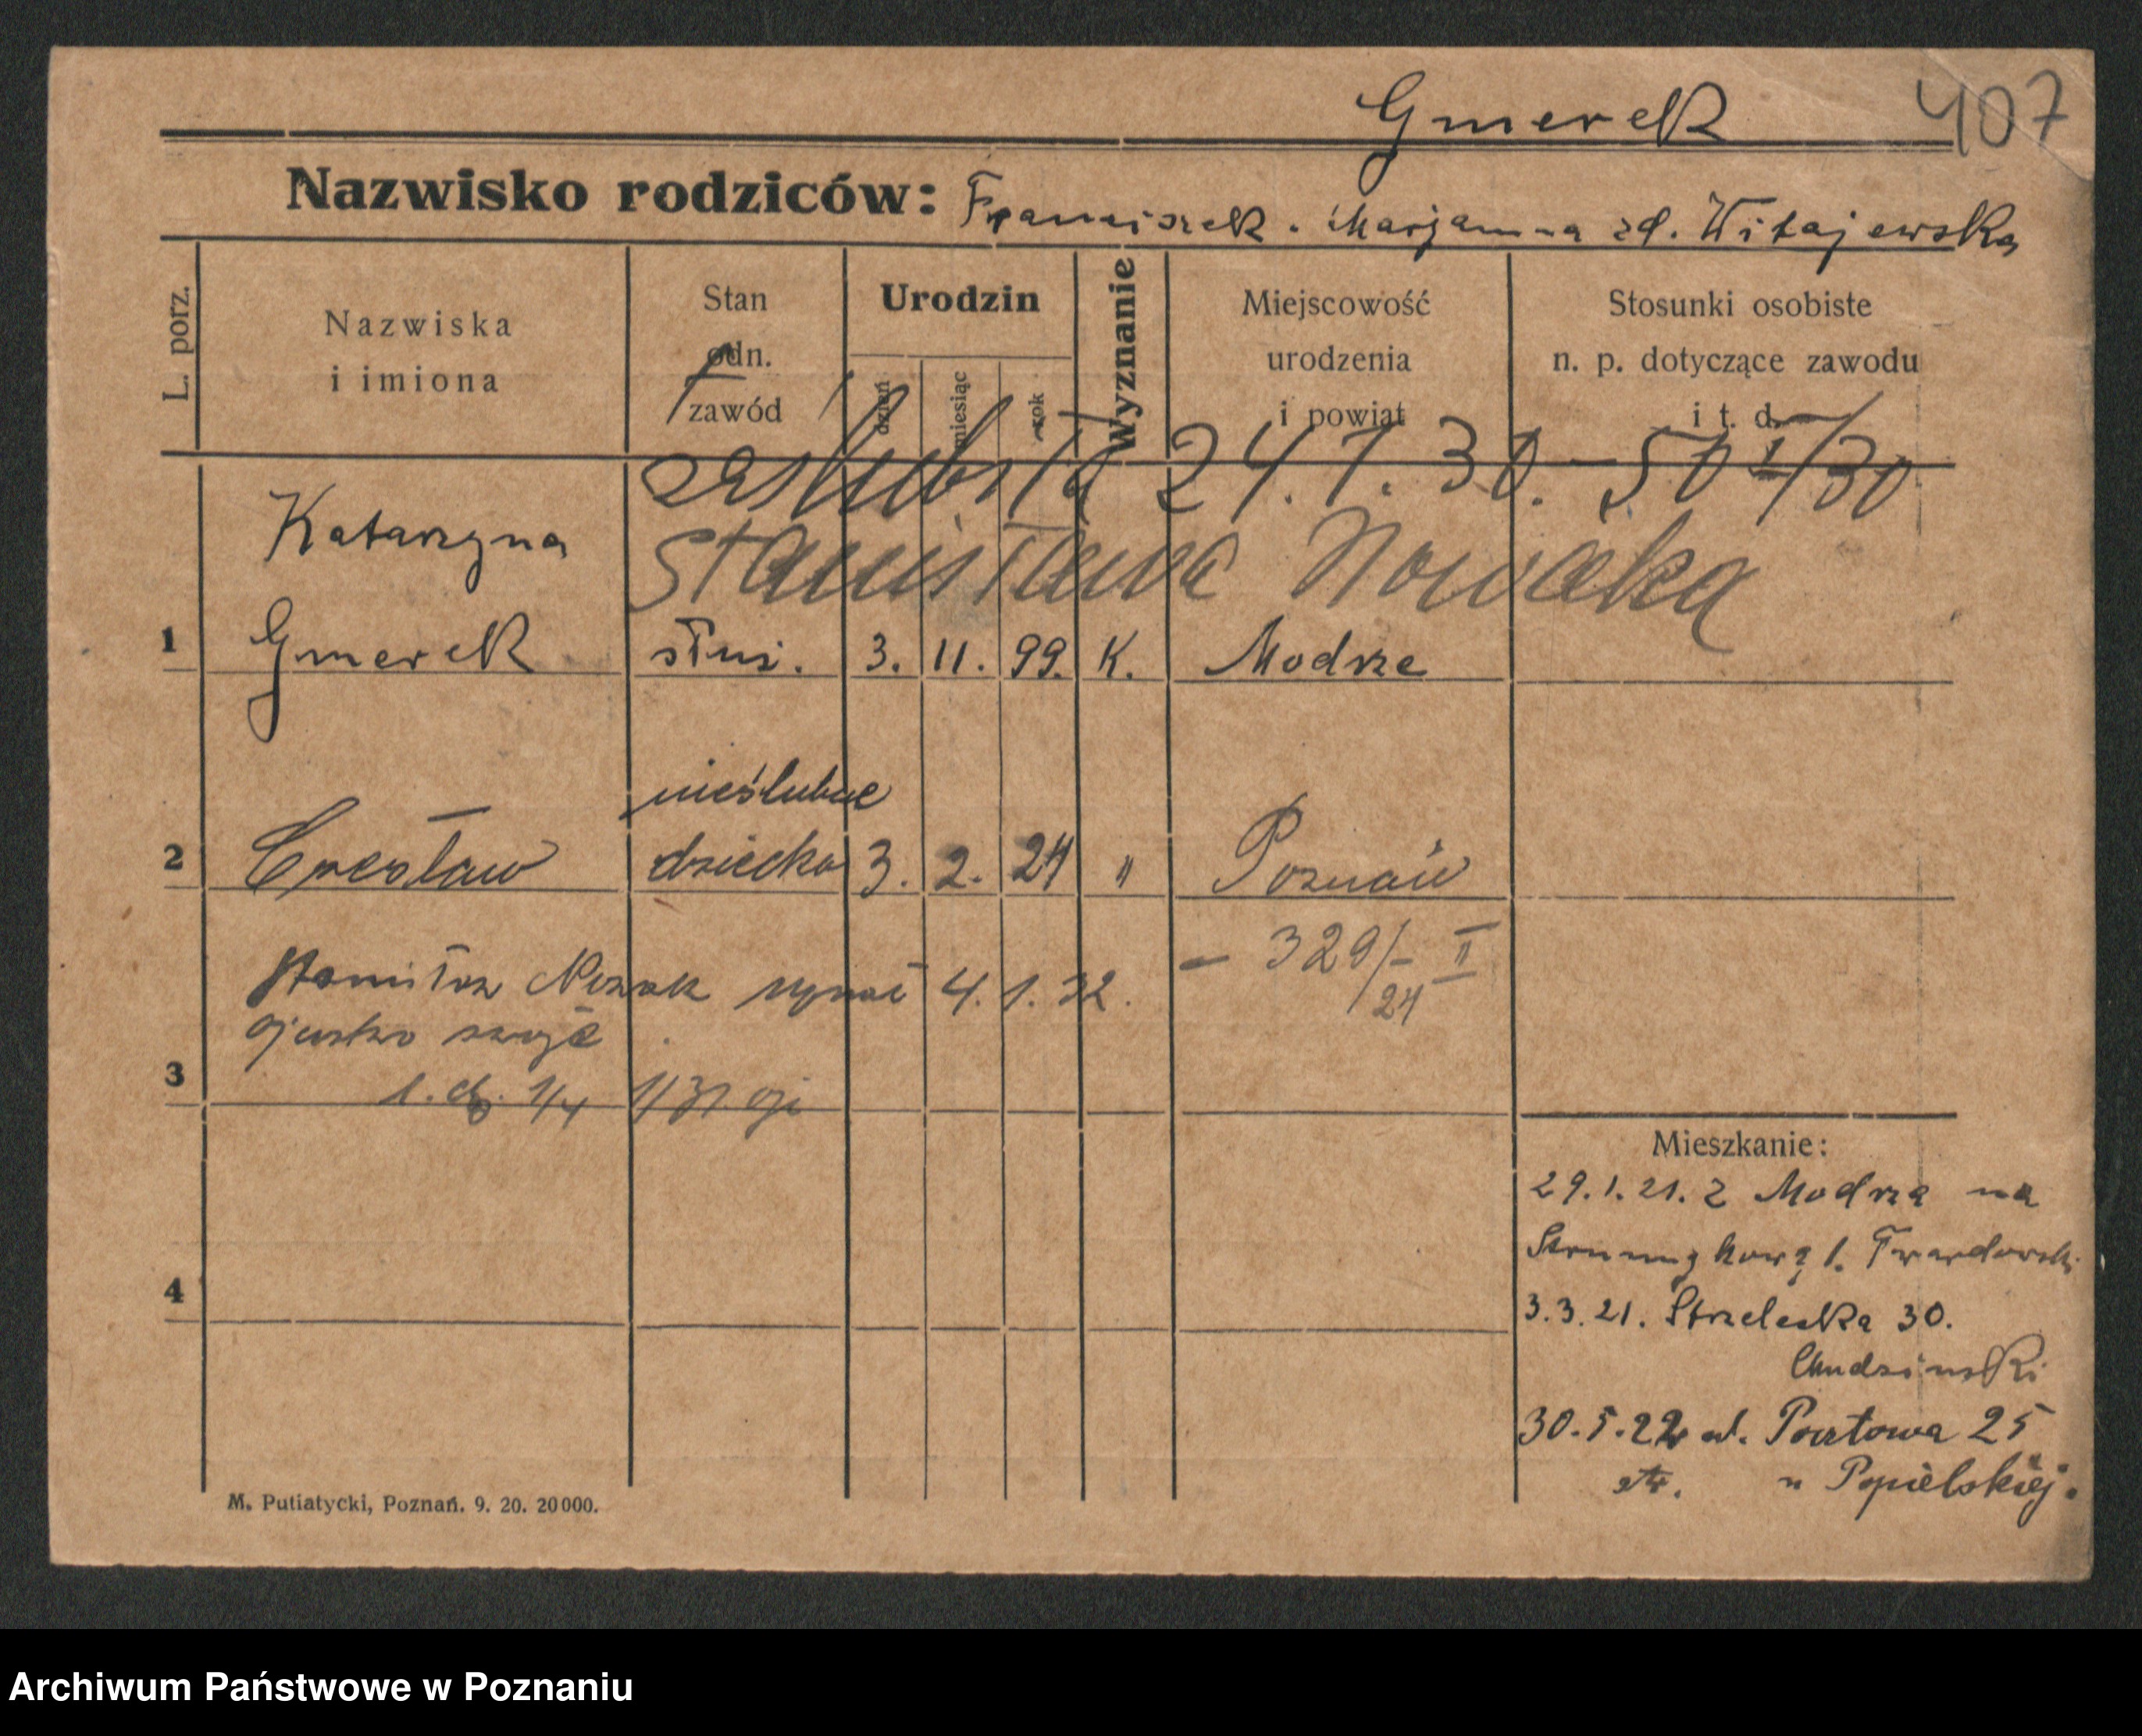 Gmerek 407
Nazwisko rodziców: Franciszek. Marjanna zd. Witajewska
L. porz.
Nazwiska
i imiona
Stan
odn.
zawód
Urodzin
dzień
miesiąc
rok
Wyznanie
Miejscowość
urodzenia
i powiat
Stosunki osobiste
n. p. dotyczące zawodu
i t. d.
zaślubiła 24.1.30. - 50 I/30
Stanisława Nowaka
Katarzyna
1 Gmerek służ. 3. 11. 99. K. Modrze
nieślubne
2 Czesław dziecko 3. 2. 24 " Poznań
- 329/- II
24
Stanisław Nowak uznał 4. 1. 32.
ojcostwo swoje
3
4
Mieszkanie:
29.1.21. z Modrza na
Strumykową 1. Twardowski
3.3.21. Strzelecka 30.
Chudzinski
30.5.22 ul. Pocztowa 25
u Popielskiej.
M. Putiatycki, Poznań. 9. 20. 20000.
Archiwum Państwowe w Poznaniu